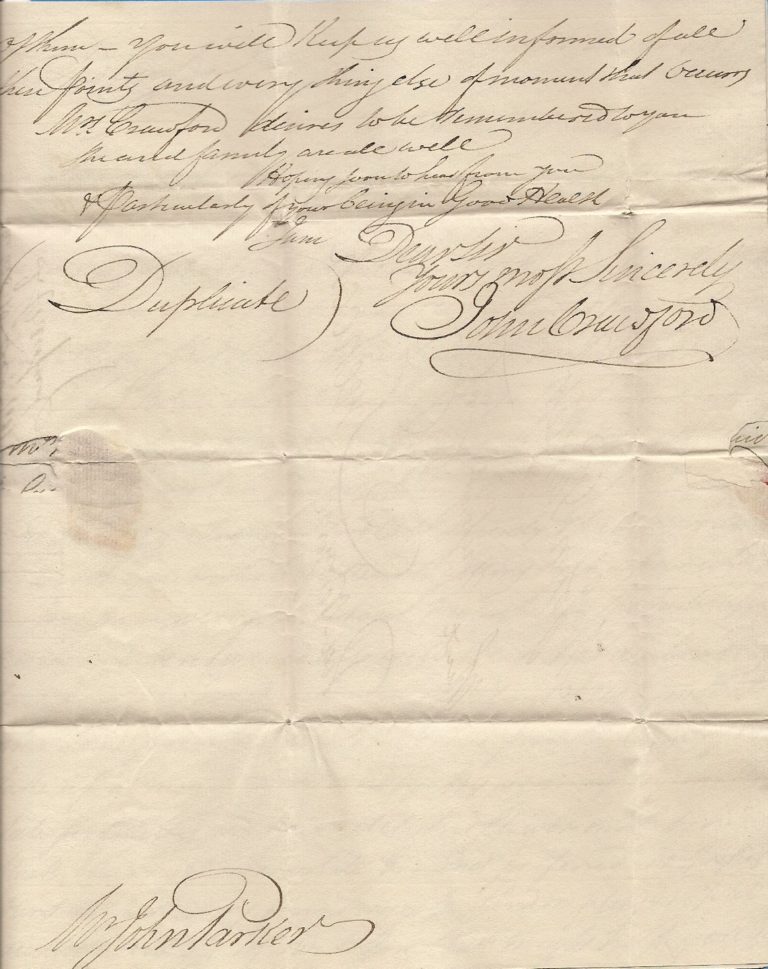 of them – You will Keep us well informed of all
these points and every thing else of moment that Occurs
Mrs Crawford desires to be remembered to you
She and family are all well
Hoping soon to hear from you
& Particularly of your being in Good Health
I am Dear Sir
Yours most Sincerely
Duplicate)
John Crawford
Mr John Parker